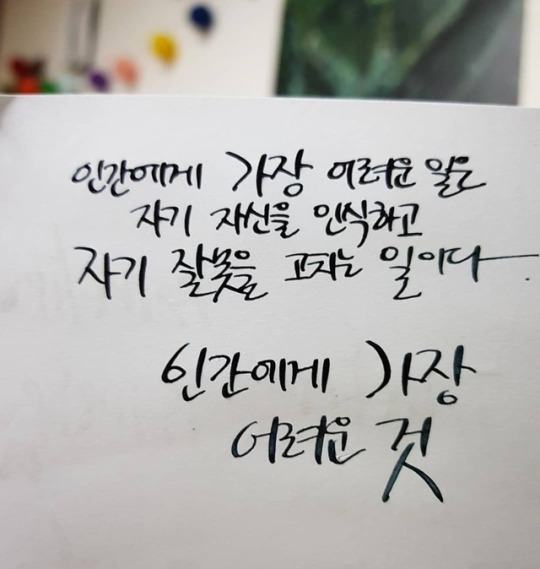 인간에게 가장 어려운 일은
자기 자신을 인식하고
자기 잘못을 고치는 일이다.
인간에게 가장
어려운 것